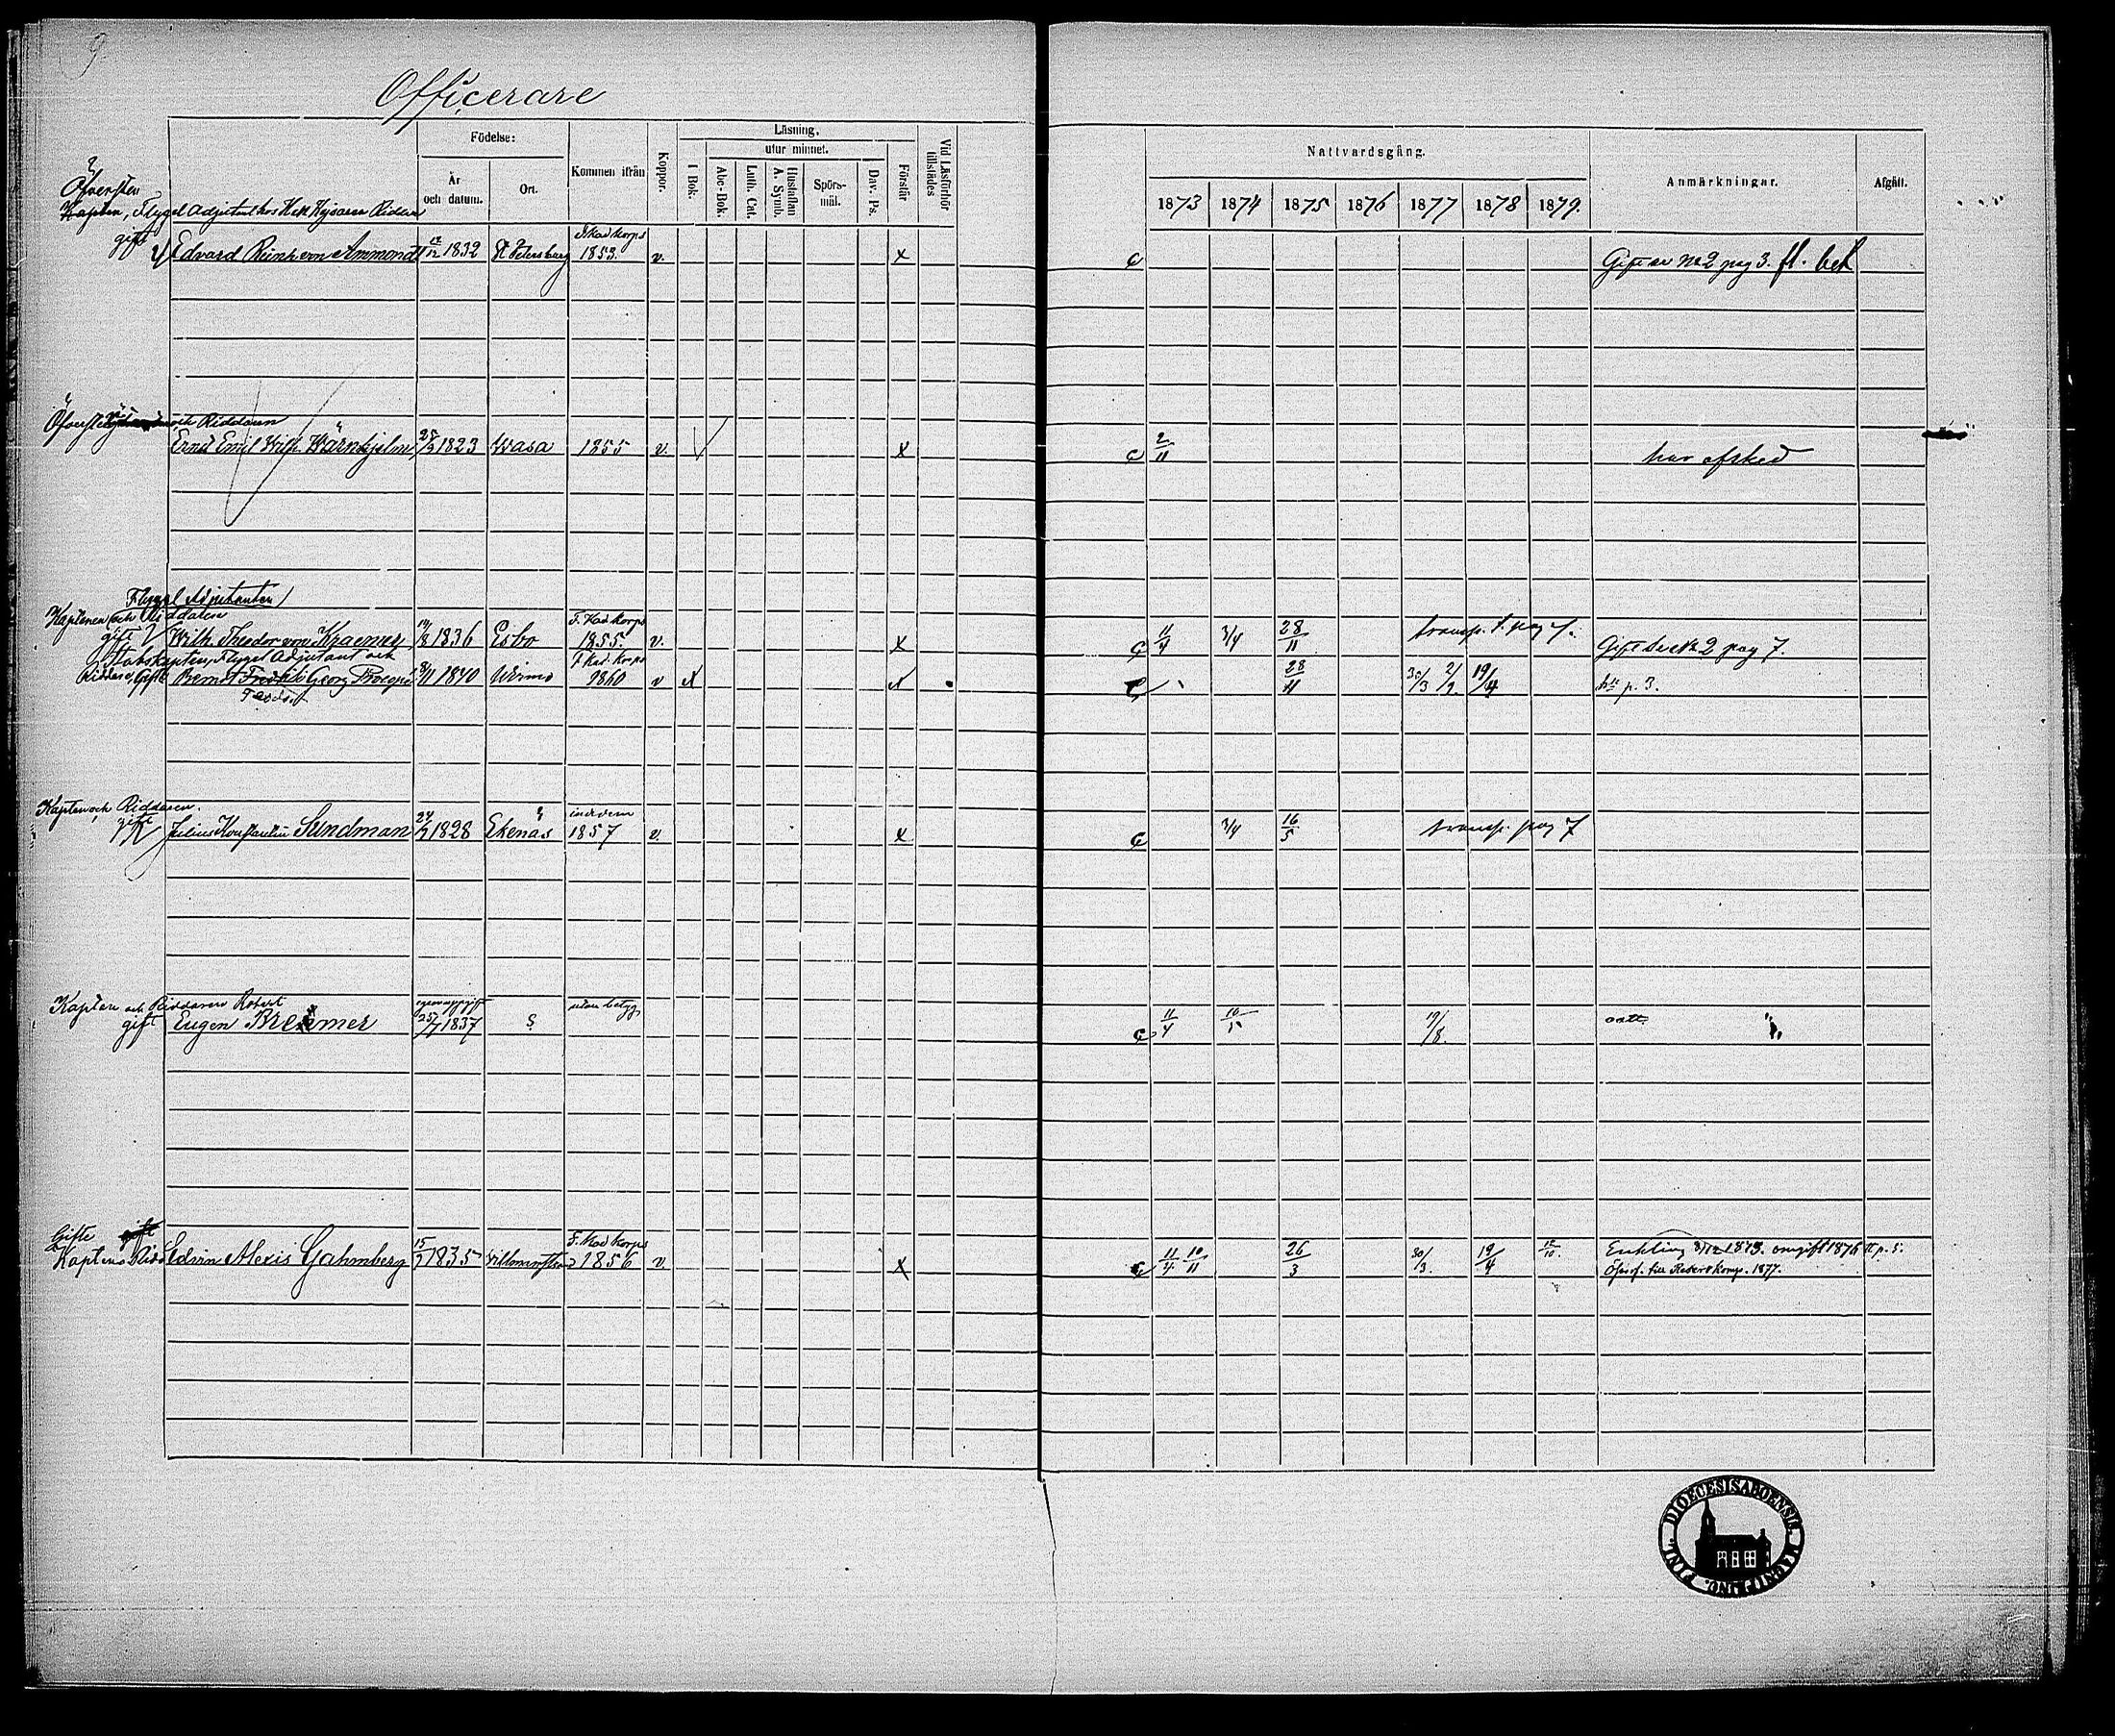 9
Officerare
Födelse: Kommen ifrån Koppor. Läsning. Vid Läsförhör tillstädes Nattvardsgång. Anmärkningar. Afgått.
År och datum. Ort. I Bok. utur minnet. Förstår
Abc-Bok. Luth. Cat. Hustaflan A. Symb. Spörs-mål. Dav. Ps. 1873 1874 1875 1876 1877 1878 1879.
Öfversten
Kapten, Flygel Adjutant hos H.K. Kejsaren Riddare
gift Edvard Reinh von Ammondt 1832 St Petersburg F. Kad korps 1853. v. x Gift se No 2 pag 3. fl. bet
Öfverste och Riddaren
Ernst Emil Wilh. Wärnhjelm 1823 Wasa 1855 v. x 2/11 har afsked
Flygel Adjutanten
Kaptenen och Riddaren
gift Wilh. Theodor von Kraemer 1836 Esbo F. Kad korps 1855. v. x 11/4 3/4 28/11 transp. t. pag 7. Gift se No 2 pag 7
Stabskapten, Flygel Adjutant och
Riddare, Gifte Bernd Fredrik Georg Procopé 8/11 1840 Wirmo F. Kad. Korps 1860 v x x 28/11 30/3 2/9 19/4 p. 3.
Teodor
Kapten och Riddaren.
gift Julius Konstantin Sundman 1828 Ekenäs 1857 v. x 3/4 16/5 transp. pag 7
Kapten och Riddaren Robert
gift Eugen Bremer egen uppgift 25/7 1837 ? utan betyg 11/4 10/5 19/8
Gifte gift
Kapten o Ridd Edvin Alexis Gahmberg 15/7 1835 Willmanstrand F. Kad korps 1856 v. x 11/4 10/11 26/3 30/3. 19/4 12/10. Enkling 1873. omgift 1876 II p. 5.
Öfverf. till Reserv komp. 1877.
DIOECESIS ABOENSIS